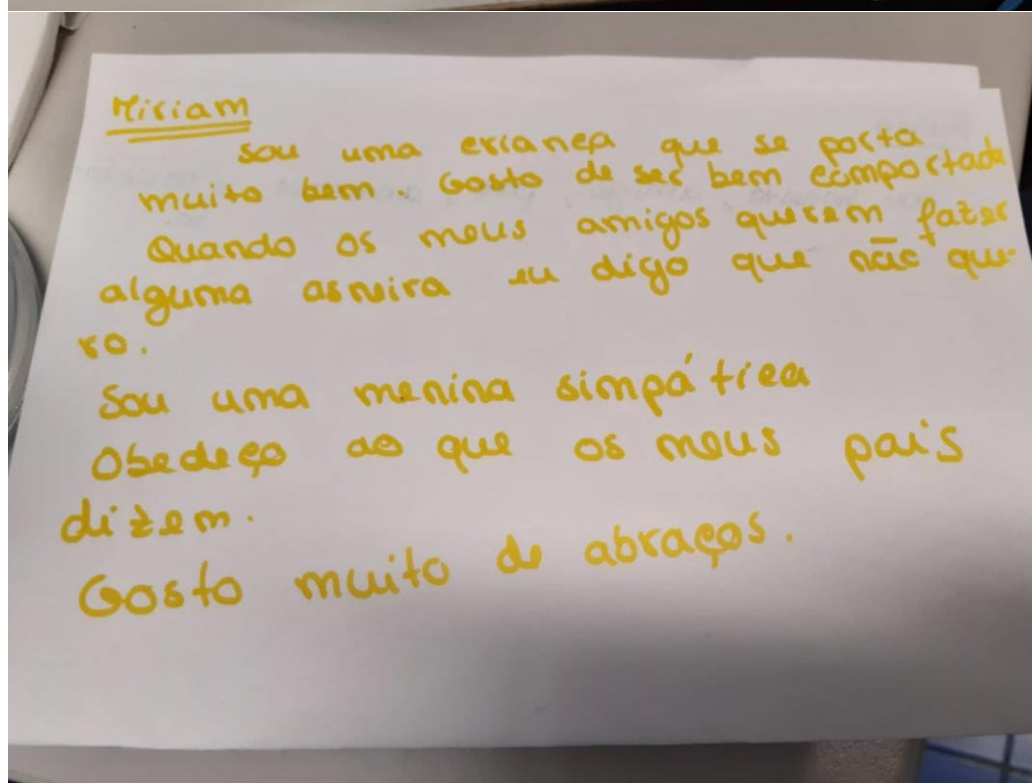 Miriam
Sou uma criança que se porta
muito bem. Gosto de ser bem comportada
Quando os meus amigos querem fazer
alguma asneira eu digo que não que-
ro.
Sou uma menina simpática
Obedeço ao que os meus pais
dizem.
Gosto muito de abraços.